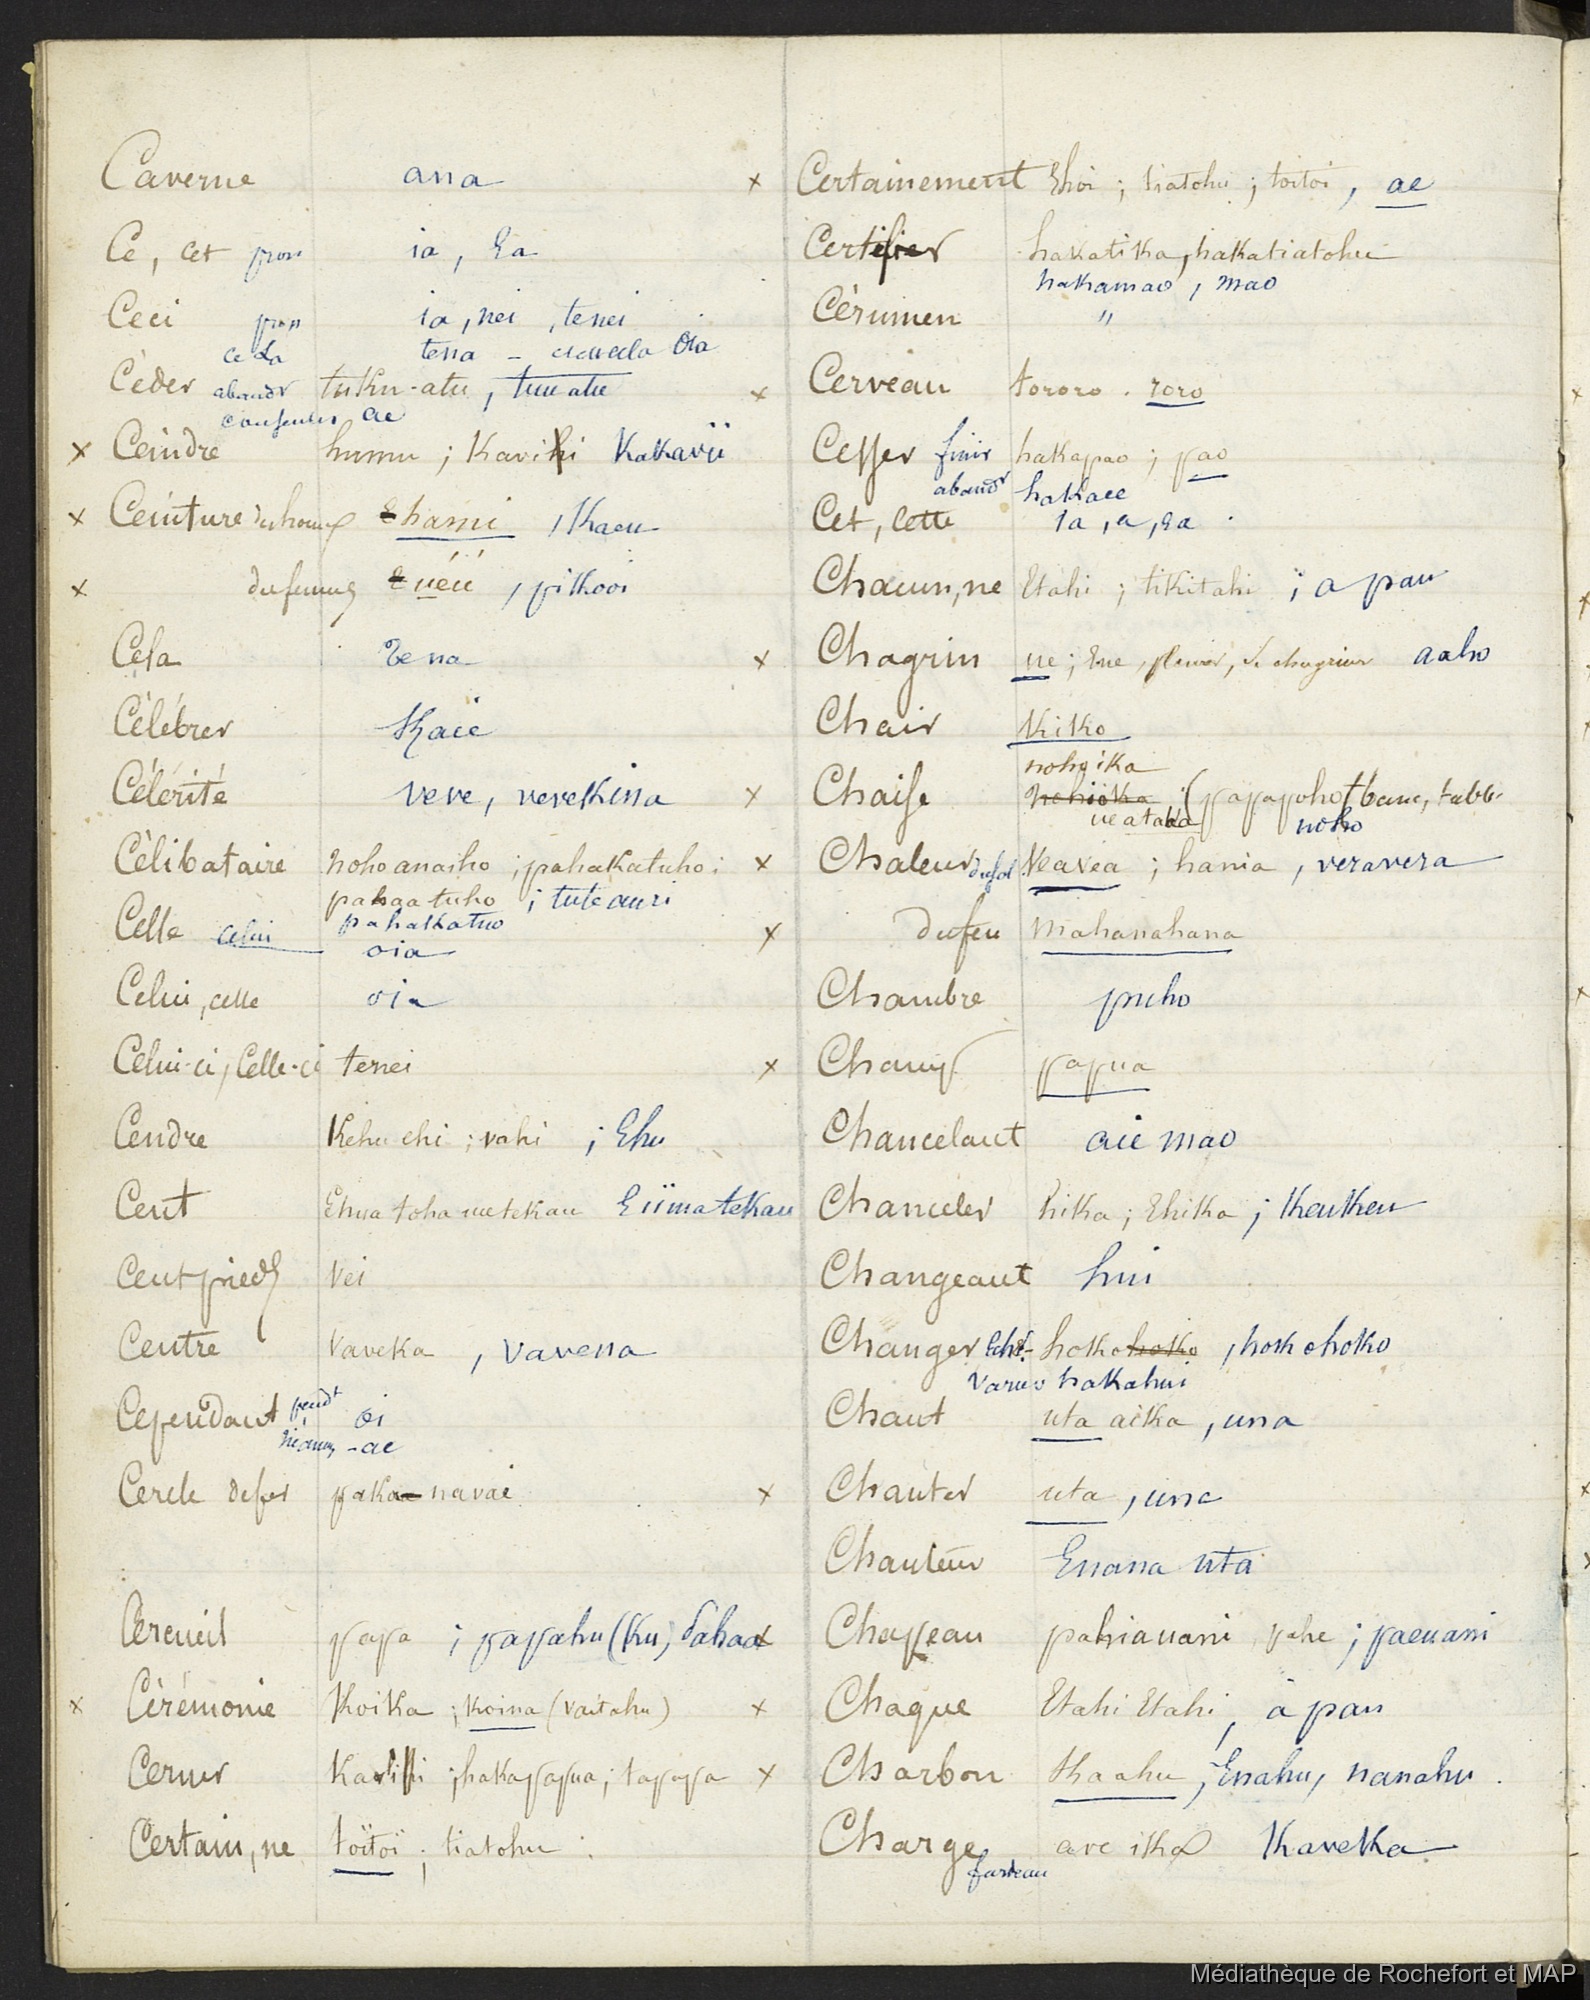 Caverne ana
Ce, cet pron ia, Ea
Ceci pron ia, nei, tenei
cela tena - oia
Céder abandr tuku-atu, tuu atu
ae
x Ceindre humu; Kavihi Kakavii
x Ceinture d'homme E hami, Kaeu
x de femme E uéii, pikooi
Cela Tena
Célébrer Kaie
Célérité veve, vevekina
Célibataire nohoanaiho; pahakatuho;
pahaatuho; tuteauri
pahakatuo
Celle celui oia
Celui, celle oia
Celui-ci, Celle-ci tenei
Cendre Kehu ehi; vahi; Ehu
Cent Ehua toha me tekau E iima tekau
Cent pieds Vei
Centre Vaveka, vavena
Cependant pendt oi
-ae
Cercle de fer paka navai
Cercueil papa; papahu (Ku)
x Cérémonie Koika; koina (vaitahu)
Cerner hakapapua; tapapa
Certain, ne toïtoï; tiatohu
x Certainement Ehoi; tiatohu; toitoi, ae
Certifier hakatika, hakatiatohu
hakamao, mao
Cérumen "
x Cerveau tororo. roro
Cesser finir hakapao; pao
abandr hakaee
Cet, cette ia, a, Ea
Chacun, ne Etahi; tikitahi; a pau
x Chagrin ue; Eue, pleurer, se chagriner aaho
Chair Kiko
nohoika
x Chaise (papapoho (banc, table
ueataka noho
x Chaleur du sol Veavea; hania, veravera
x du feu Mahanahana
Chambre puho
x Champ papua
Chancelant aie mao
Chanceler hika; Ehika; Keukeu
Changeant hui
Changer Ech.- hoko hoko, hokohoko
hakahui
Chant uta aika, una
x Chanter uta, una
Chanteur Enana uta
x Chapeau pahiauani pahe; paeuani
x Chaque Etahi Etahi, a pau
x Charbon Kaahu; Enahu, nanahu.
Charge ave ika Kaveka
fardeau
Médiathèque de Rochefort et MAP